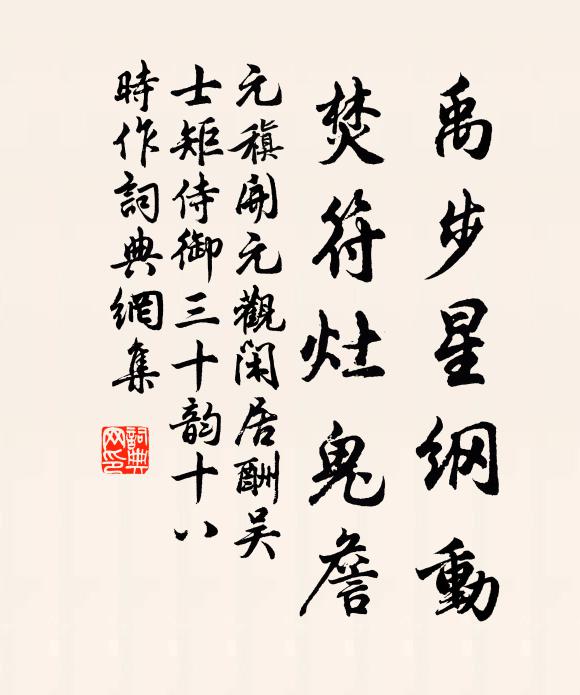 禹步星纲動
焚符灶鬼詹
元稹開元觀閑居酬吴
士矩侍御三十韵十八
時作詞典網集
詞典网印